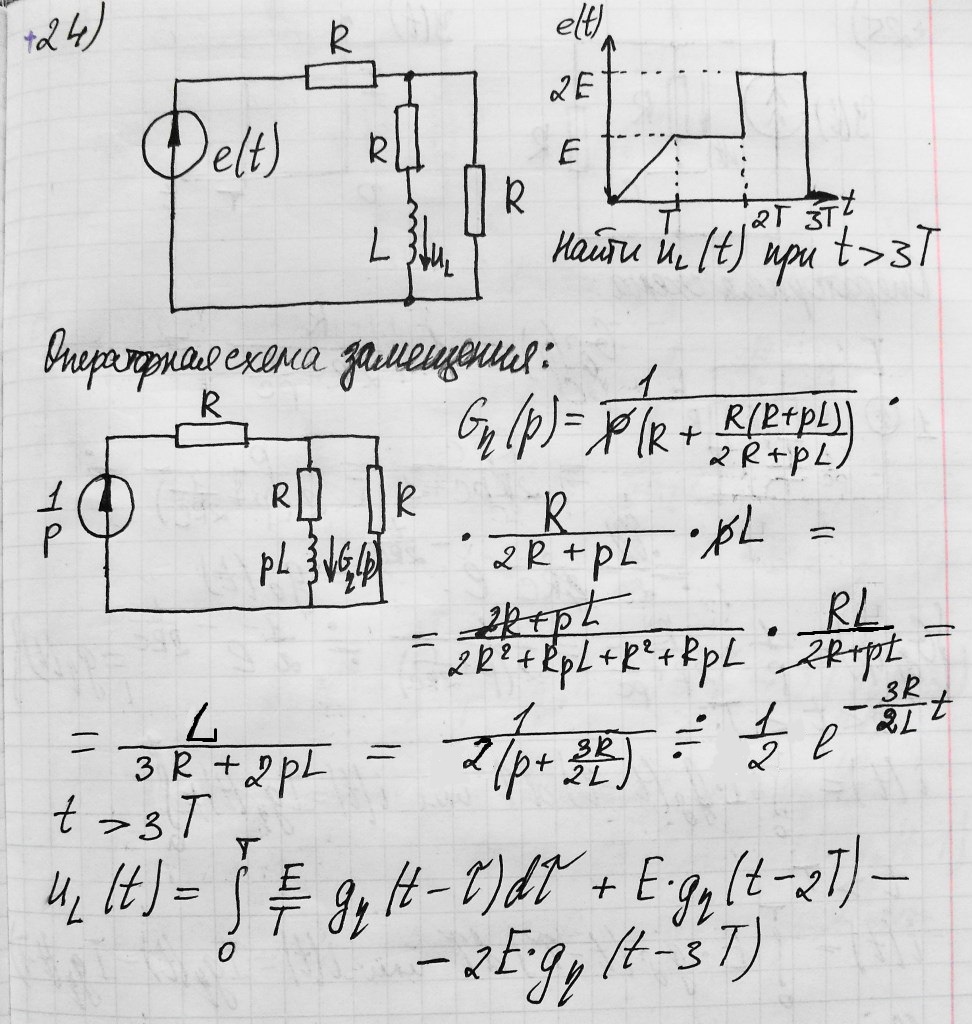 +24)
R
e(t)
R
L
u_L
R
e(t)
2E
E
T 2T 3T t
Найти u_L(t) при t > 3T
Операторная схема замещения:
R
1/p
R
pL
G_η(p)
R
G_η(p) = 1 / (p(R + R(R+pL)/(2R+pL))) ·
· R/(2R + pL) · pL =
= (2R+pL)/(2R² + RpL + R² + RpL) · RL/(2R+pL) =
= L/(3R + 2pL) = 1/(2(p + 3R/2L)) ≓ 1/2 e^(-3R/2L t)
t > 3T
u_L(t) = ∫₀ᵀ E/T g_η(t - τ)dτ + E·g_η(t - 2T) -
- 2E·g_η(t - 3T)